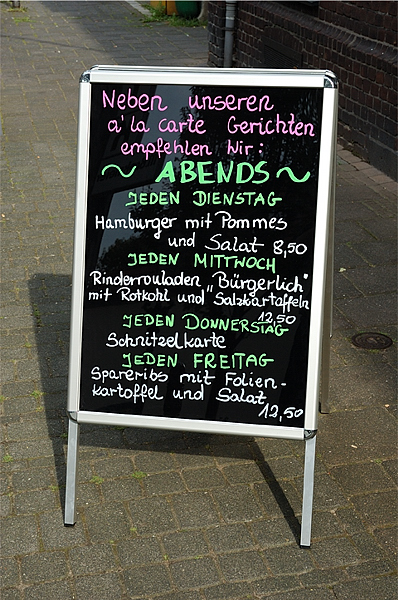 Neben unseren
a' la carte Gerichten
empfehlen Wir:
~ ABENDS ~
JEDEN DIENSTAG
Hamburger mit Pommes
und Salat 8,50
JEDEN MITTWOCH
Rinderrouladen „Bürgerlich"
mit Rotkohl und Salzkartoffeln
12,50
JEDEN DONNERSTAG
Schnitzelkarte
JEDEN FREITAG
Spareribs mit Folien-
kartoffel und Salat
12,50